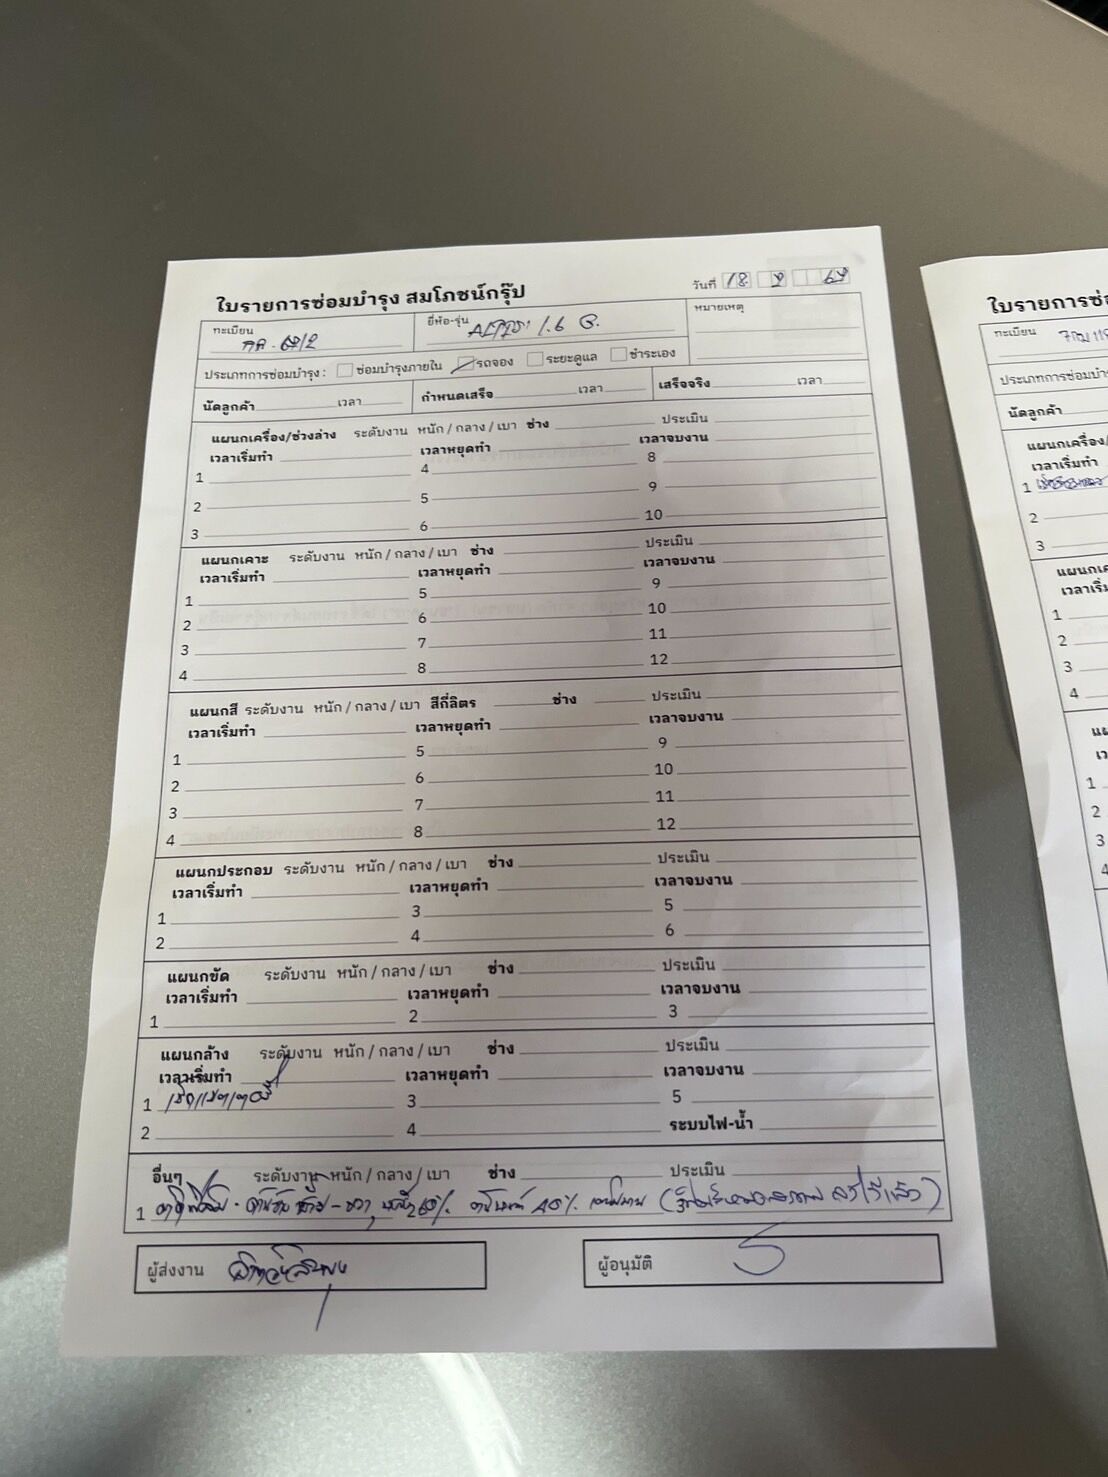 ใบรายการซ่อมบำรุง สมโภชน์กรุ๊ป
วันที่ 18 9 67
ทะเบียน
ยี่ห้อ-รุ่น ALTIS 1.6 G.
หมายเหตุ
ประเภทการซ่อมบำรุง : ซ่อมบำรุงภายใน รถจอง ระยะดูแล ชำระเอง
นัดลูกค้า เวลา กำหนดเสร็จ เวลา เสร็จจริง เวลา
แผนกเครื่อง/ช่วงล่าง ระดับงาน หนัก / กลาง / เบา ช่าง ประเมิน
เวลาเริ่มทำ เวลาหยุดทำ เวลาจบงาน
1 4 8
2 5 9
3 6 10
แผนกเคาะ ระดับงาน หนัก / กลาง / เบา ช่าง ประเมิน
เวลาเริ่มทำ เวลาหยุดทำ เวลาจบงาน
1 5 9
2 6 10
3 7 11
4 8 12
แผนกสี ระดับงาน หนัก / กลาง / เบา สีกี่ลิตร ช่าง ประเมิน
เวลาเริ่มทำ เวลาหยุดทำ เวลาจบงาน
1 5 9
2 6 10
3 7 11
4 8 12
แผนกประกอบ ระดับงาน หนัก / กลาง / เบา ช่าง ประเมิน
เวลาเริ่มทำ เวลาหยุดทำ เวลาจบงาน
1 3 5
2 4 6
แผนกขัด ระดับงาน หนัก / กลาง / เบา ช่าง ประเมิน
เวลาเริ่มทำ เวลาหยุดทำ เวลาจบงาน
1 2 3
แผนกล้าง ระดับงาน หนัก / กลาง / เบา ช่าง ประเมิน
เวลาเริ่มทำ เวลาหยุดทำ เวลาจบงาน
1 3 5
2 4 ระบบไฟ-น้ำ
อื่นๆ ระดับงาน หนัก / กลาง / เบา ช่าง ประเมิน
1 ติดฟิล์ม 60% 40%
ผู้ส่งงาน
ผู้อนุมัติ
ใบรายการซ่อ
ทะเบียน
ประเภทการซ่อมบำรุ
นัดลูกค้า
แผนกเครื่อง/
เวลาเริ่มทำ
1
2
3
แผนกเค
เวลาเริ่
1
2
3
4
1
2
3
4